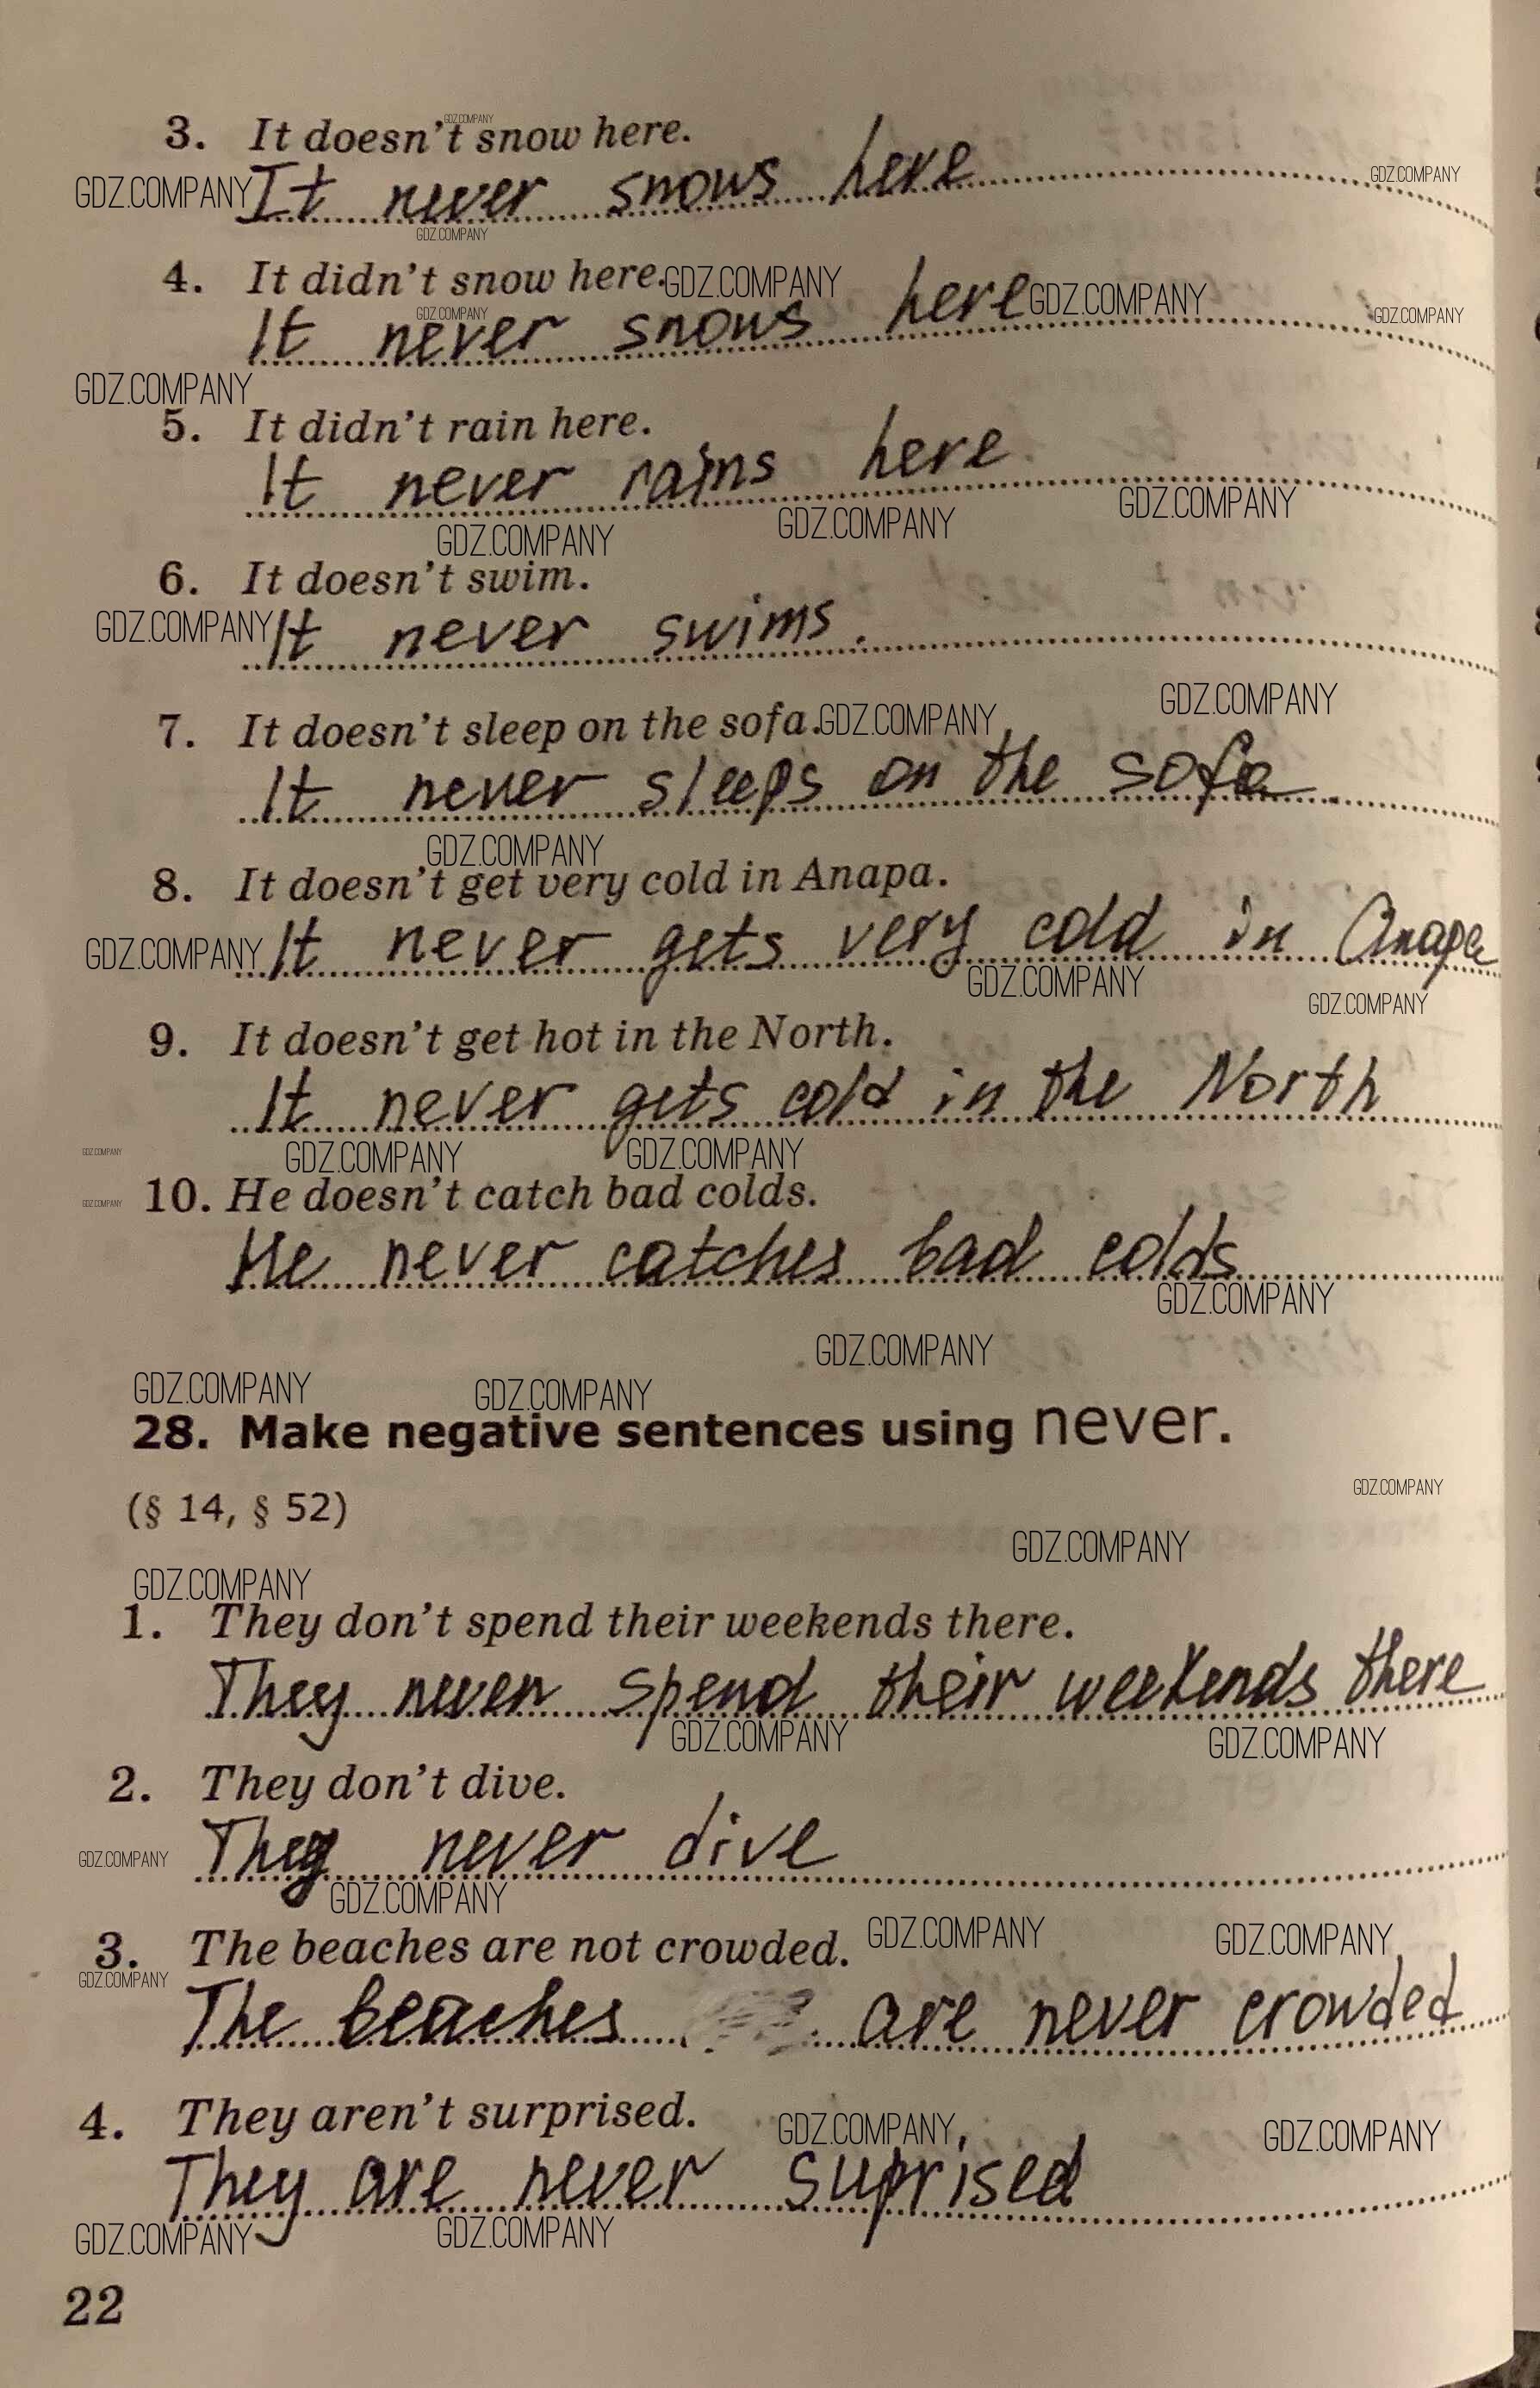 GDZ.COMPANY
3. It doesn't snow here.
GDZ.COMPANY It never snows here GDZ.COMPANY
GDZ.COMPANY
4. It didn't snow here. GDZ.COMPANY
GDZ.COMPANY GDZ.COMPANY GDZ.COMPANY
It never snows here
GDZ.COMPANY
5. It didn't rain here.
It never rains here
GDZ.COMPANY GDZ.COMPANY GDZ.COMPANY
6. It doesn't swim.
GDZ.COMPANY It never swims.
GDZ.COMPANY
7. It doesn't sleep on the sofa. GDZ.COMPANY
It never sleeps on the sofa
GDZ.COMPANY
8. It doesn't get very cold in Anapa.
GDZ.COMPANY It never gets very cold in Anapa
GDZ.COMPANY GDZ.COMPANY
9. It doesn't get hot in the North.
It never gets cold in the North
GDZ.COMPANY GDZ.COMPANY GDZ.COMPANY
GDZ.COMPANY 10. He doesn't catch bad colds.
He never catches bad colds
GDZ.COMPANY
GDZ.COMPANY
GDZ.COMPANY GDZ.COMPANY
28. Make negative sentences using never.
GDZ.COMPANY
(§ 14, § 52)
GDZ.COMPANY
GDZ.COMPANY
1. They don't spend their weekends there.
They never spend their weekends there
GDZ.COMPANY GDZ.COMPANY
2. They don't dive.
GDZ.COMPANY They never dive
GDZ.COMPANY
3. The beaches are not crowded. GDZ.COMPANY GDZ.COMPANY
GDZ.COMPANY
The beaches are never crowded
4. They aren't surprised. GDZ.COMPANY GDZ.COMPANY
They are never suprised
GDZ.COMPANY GDZ.COMPANY
22